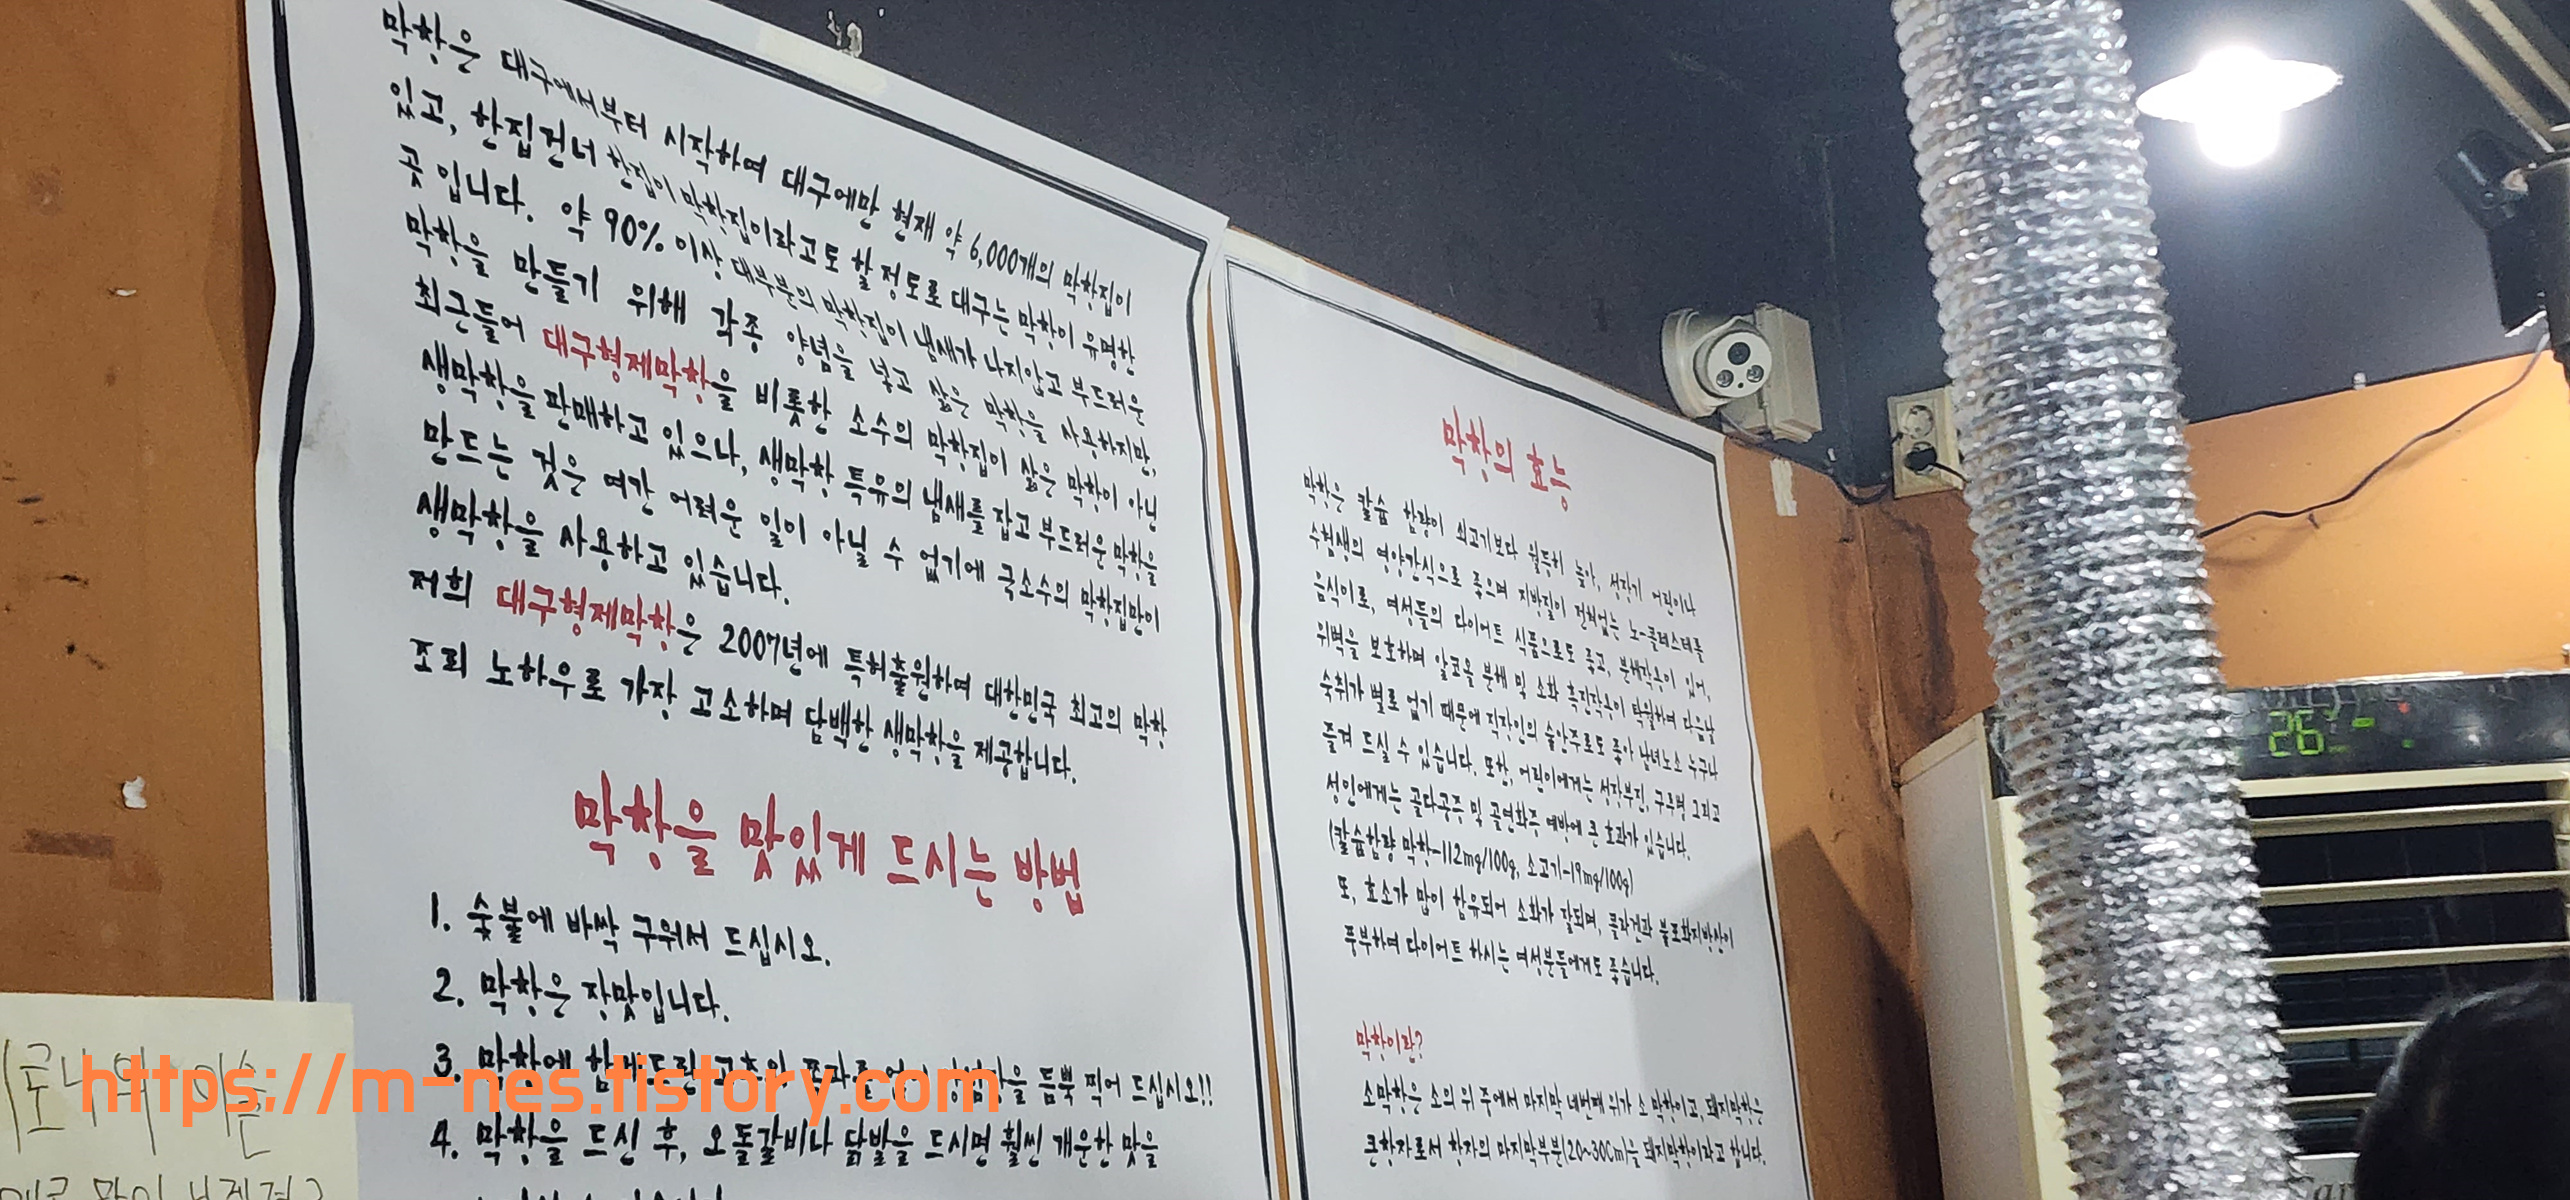 막창은 대구에서부터 시작하여 대구에만 현재 약 6,000개의 막창집이
있고, 한집건너 한집이 막창집이라고도 할 정도로 대구는 막창이 유명한
곳 입니다. 약 90% 이상 대부분의 막창집이 냄새가 나지않고 부드러운
막창을 만들기 위해 각종 양념을 넣고 삶은 막창을 사용하지만,
최근들어 대구형제막창을 비롯한 소수의 막창집이 삶은 막창이 아닌
생막창을 판매하고 있으나, 생막창 특유의 냄새를 잡고 부드러운 막창을
만드는 것은 여간 어려운 일이 아닐 수 없기에 극소수의 막창집만이
생막창을 사용하고 있습니다.
저희 대구형제막창은 2007년에 특허출원하여 대한민국 최고의 막창
조리 노하우로 가장 고소하며 담백한 생막창을 제공합니다.
막창을 맛있게 드시는 방법
1. 숯불에 바싹 구워서 드십시오.
2. 막창은 장맛입니다.
3. 막창에 함께 드린 고추와 쪽파를 을 듬뿍 찍어 드십시오!!
4. 막창을 드신 후, 오돌갈비나 닭발을 드시면 훨씬 개운한 맛을
막창의 효능
막창은 칼슘 함량이 쇠고기보다 월등히 높아, 성장기 어린이나
수험생의 영양간식으로 좋으며 지방질이 전혀없는 노-콜레스테롤
음식이로, 여성들의 다이어트 식품으로도 좋고, 분해작용이 있어,
위벽을 보호하며 알코올 분해 및 소화 촉진작용이 탁월하여 다음날
숙취가 별로 없기 때문에 직장인의 술안주로도 좋아 남녀노소 누구나
즐겨 드실 수 있습니다. 또한, 어린이에게는 성장부진, 구루병 그리고
성인에게는 골다공증 및 골연화증 예방에 큰 효과가 있습니다.
(칼슘함량 막창-112mg/100g, 소고기-19mg/100g)
또, 효소가 많이 함유되어 소화가 잘되며, 콜라겐과 불포화지방산이
풍부하여 다이어트 하시는 여성분들에게도 좋습니다.
막창이란?
소막창은 소의 위 중에서 마지막 네번째 위가 소 막창이고, 돼지막창은
큰창자로서 창자의 마지막부분(20~30Cm)을 돼지막창이라고 합니다.
26
https://m-nes.tistory.com